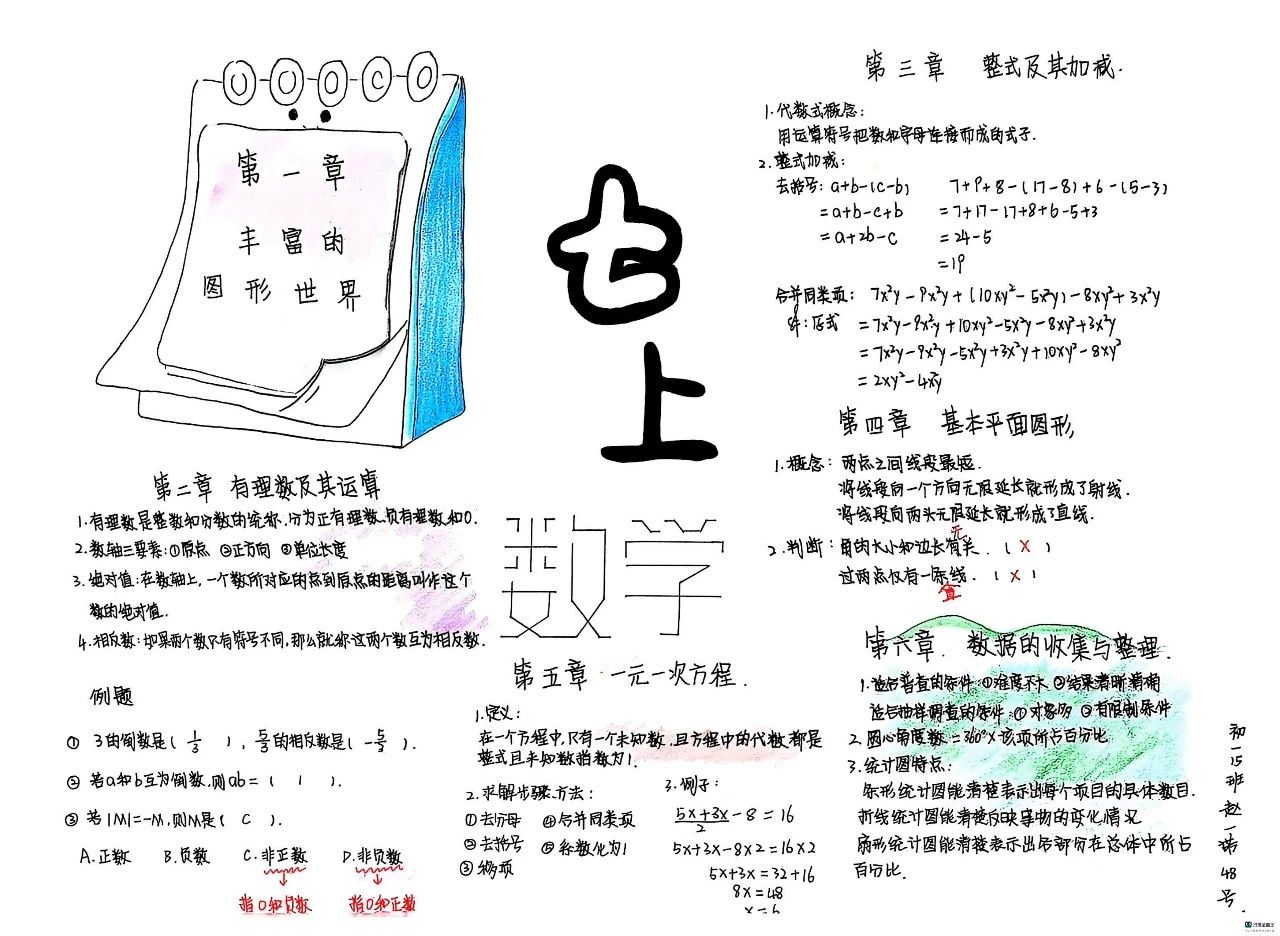 第一章
丰富的
图形世界
七
上
数学
第二章 有理数及其运算
1.有理数是整数和分数的统称,分为正有理数.负有理数和0.
2.数轴三要素:①原点 ②正方向 ③单位长度
3.绝对值:在数轴上,一个数所对应的点到原点的距离叫作这个
数的绝对值.
4.相反数:如果两个数只有符号不同,那么就称这两个数互为相反数.
例题
① 3的倒数是( 1/3 ), 5/9的相反数是( -5/9 ).
② 若a和b互为倒数,则ab=( 1 ).
③ 若|M|=-M,则M是( C ).
A.正数 B.负数 C.非正数 D.非负数
指0和负数 指0和正数
第五章 一元一次方程.
1.定义:
在一个方程中,只有一个未知数,且方程中的代数都是
整式且未知数指数为1.
2.求解步骤.方法:
①去分母 ④合并同类项
②去括号 ⑤系数化为1
③移项
3.例子:
(5x+3x)/2-8=16
5x+3x-8×2=16×2
5x+3x=32+16
8x=48
x=6
第三章 整式及其加减.
1.代数式概念:
用运算符号把数和字母连接而成的式子.
2.整式加减:
去括号: a+b-(c-b) 7+9+8-(17-8)+6-(5-3)
=a+b-c+b =7+17-17+8+6-5+3
=a+2b-c =24-5
=19
合并同类项: 7x²y-9x²y+(10xy²-5x²y)-8xy²+3x²y
解:原式 =7x²y-9x²y+10xy²-5x²y-8xy²+3x²y
=7x²y-9x²y-5x²y+3x²y+10xy²-8xy²
=2xy²-4x²y
第四章 基本平面图形
1.概念:两点之间线段最短.
将线段向一个方向无限延长就形成了射线.
将线段向两头无限延长就形成了直线.
2.判断:角的大小和边长有关.( X )
无
过两点仅有一条线.( X )
直
第六章.数据的收集与整理.
1.适合普查的条件:①难度不大 ②结果清晰精确
适合抽样调查的条件:①对象多 ②有限制条件
2.圆心角度数=360°×该项所占百分比
3.统计图特点:
条形统计图能清楚表示出每个项目的具体数目.
折线统计图能清楚反映事物的变化情况
扇形统计图能清楚表示出各部分在总体中所占
百分比.
初一15班赵一 48号.